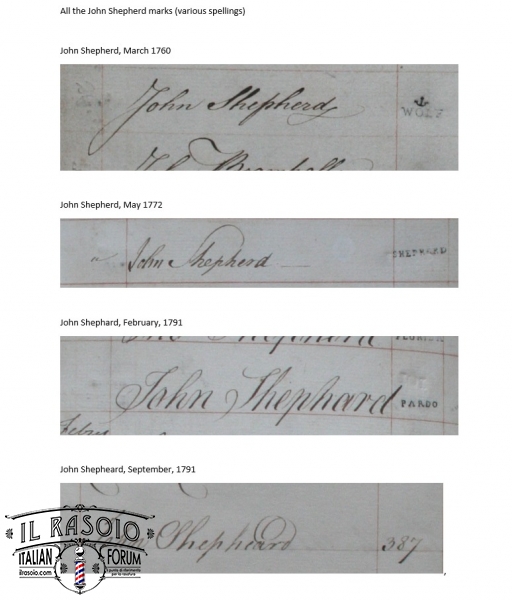 All the John Shepherd marks (various spellings)
John Shepherd, March 1760
John Shepherd
WOLF
John Shepherd, May 1772
John Shepherd
SHEPHERD
John Shephard, February, 1791
John Shephard
PARDO
John Shepheard, September, 1791
Shepheard 387
IL RASOIO
ITALIAN FORUM
ilrasoio.com
il punto di riferimento
per la rasatura